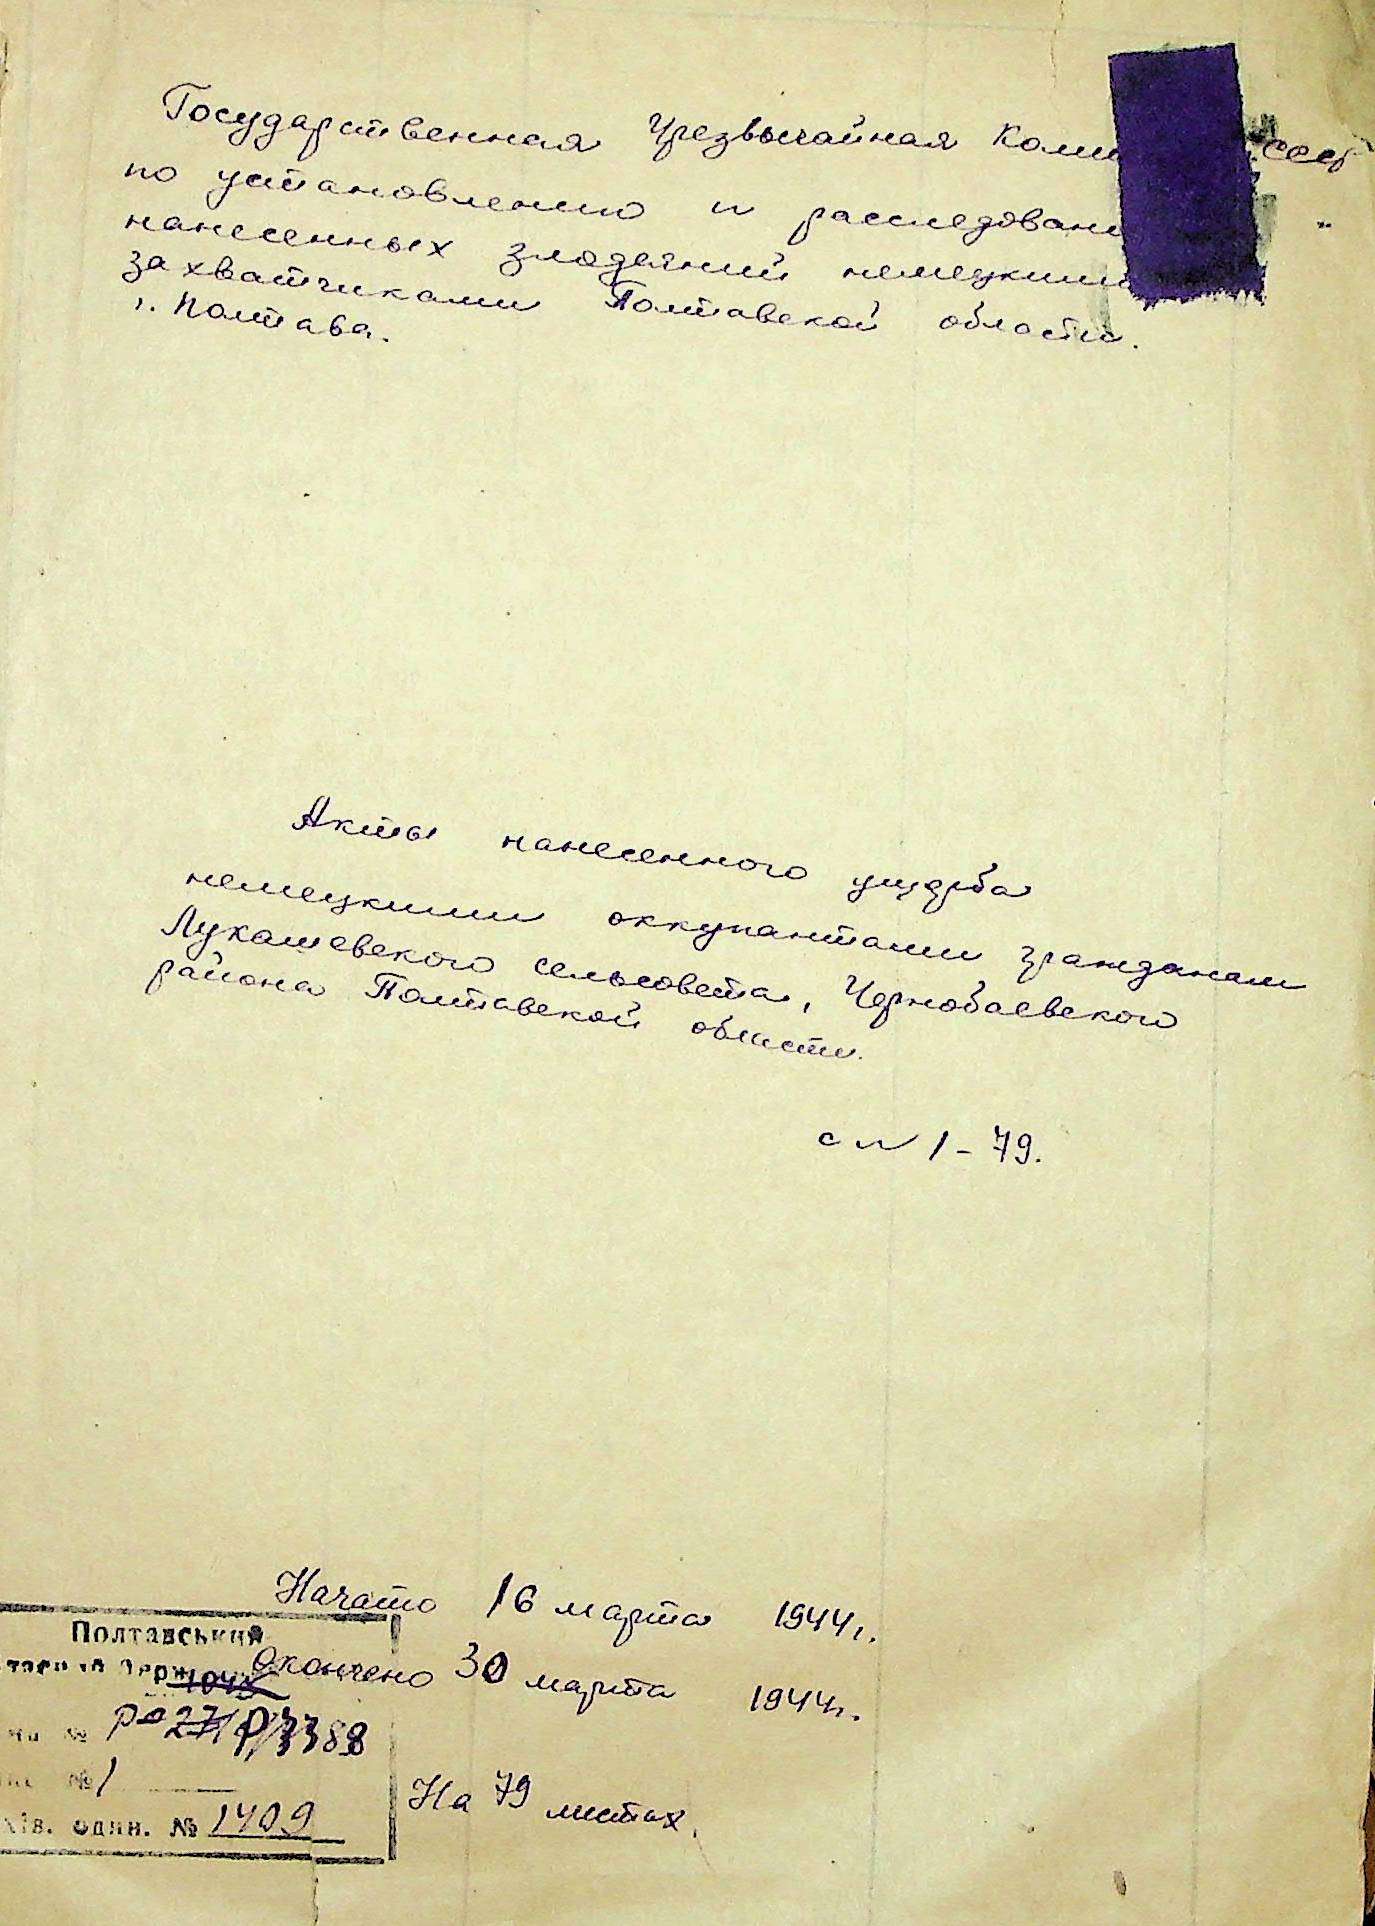 Государственная Чрезвычайная Коми СССР
по установлению и расследован
нанесенных злодеяний немецкими
захватчиками Полтавской области.
г. Полтава.
Акты нанесенного ущерба
немецкими оккупантами гражданам
Лукашевского сельсовета, Чернобаевского
района Полтавской области.
с № 1 - 79.
Начато 16 марта 1944 г.
Окончено 30 марта 1944 г.
На 79 листах.
Полтавський
№ Р-271 Р/3388
№ 1
хів. один. № 1409